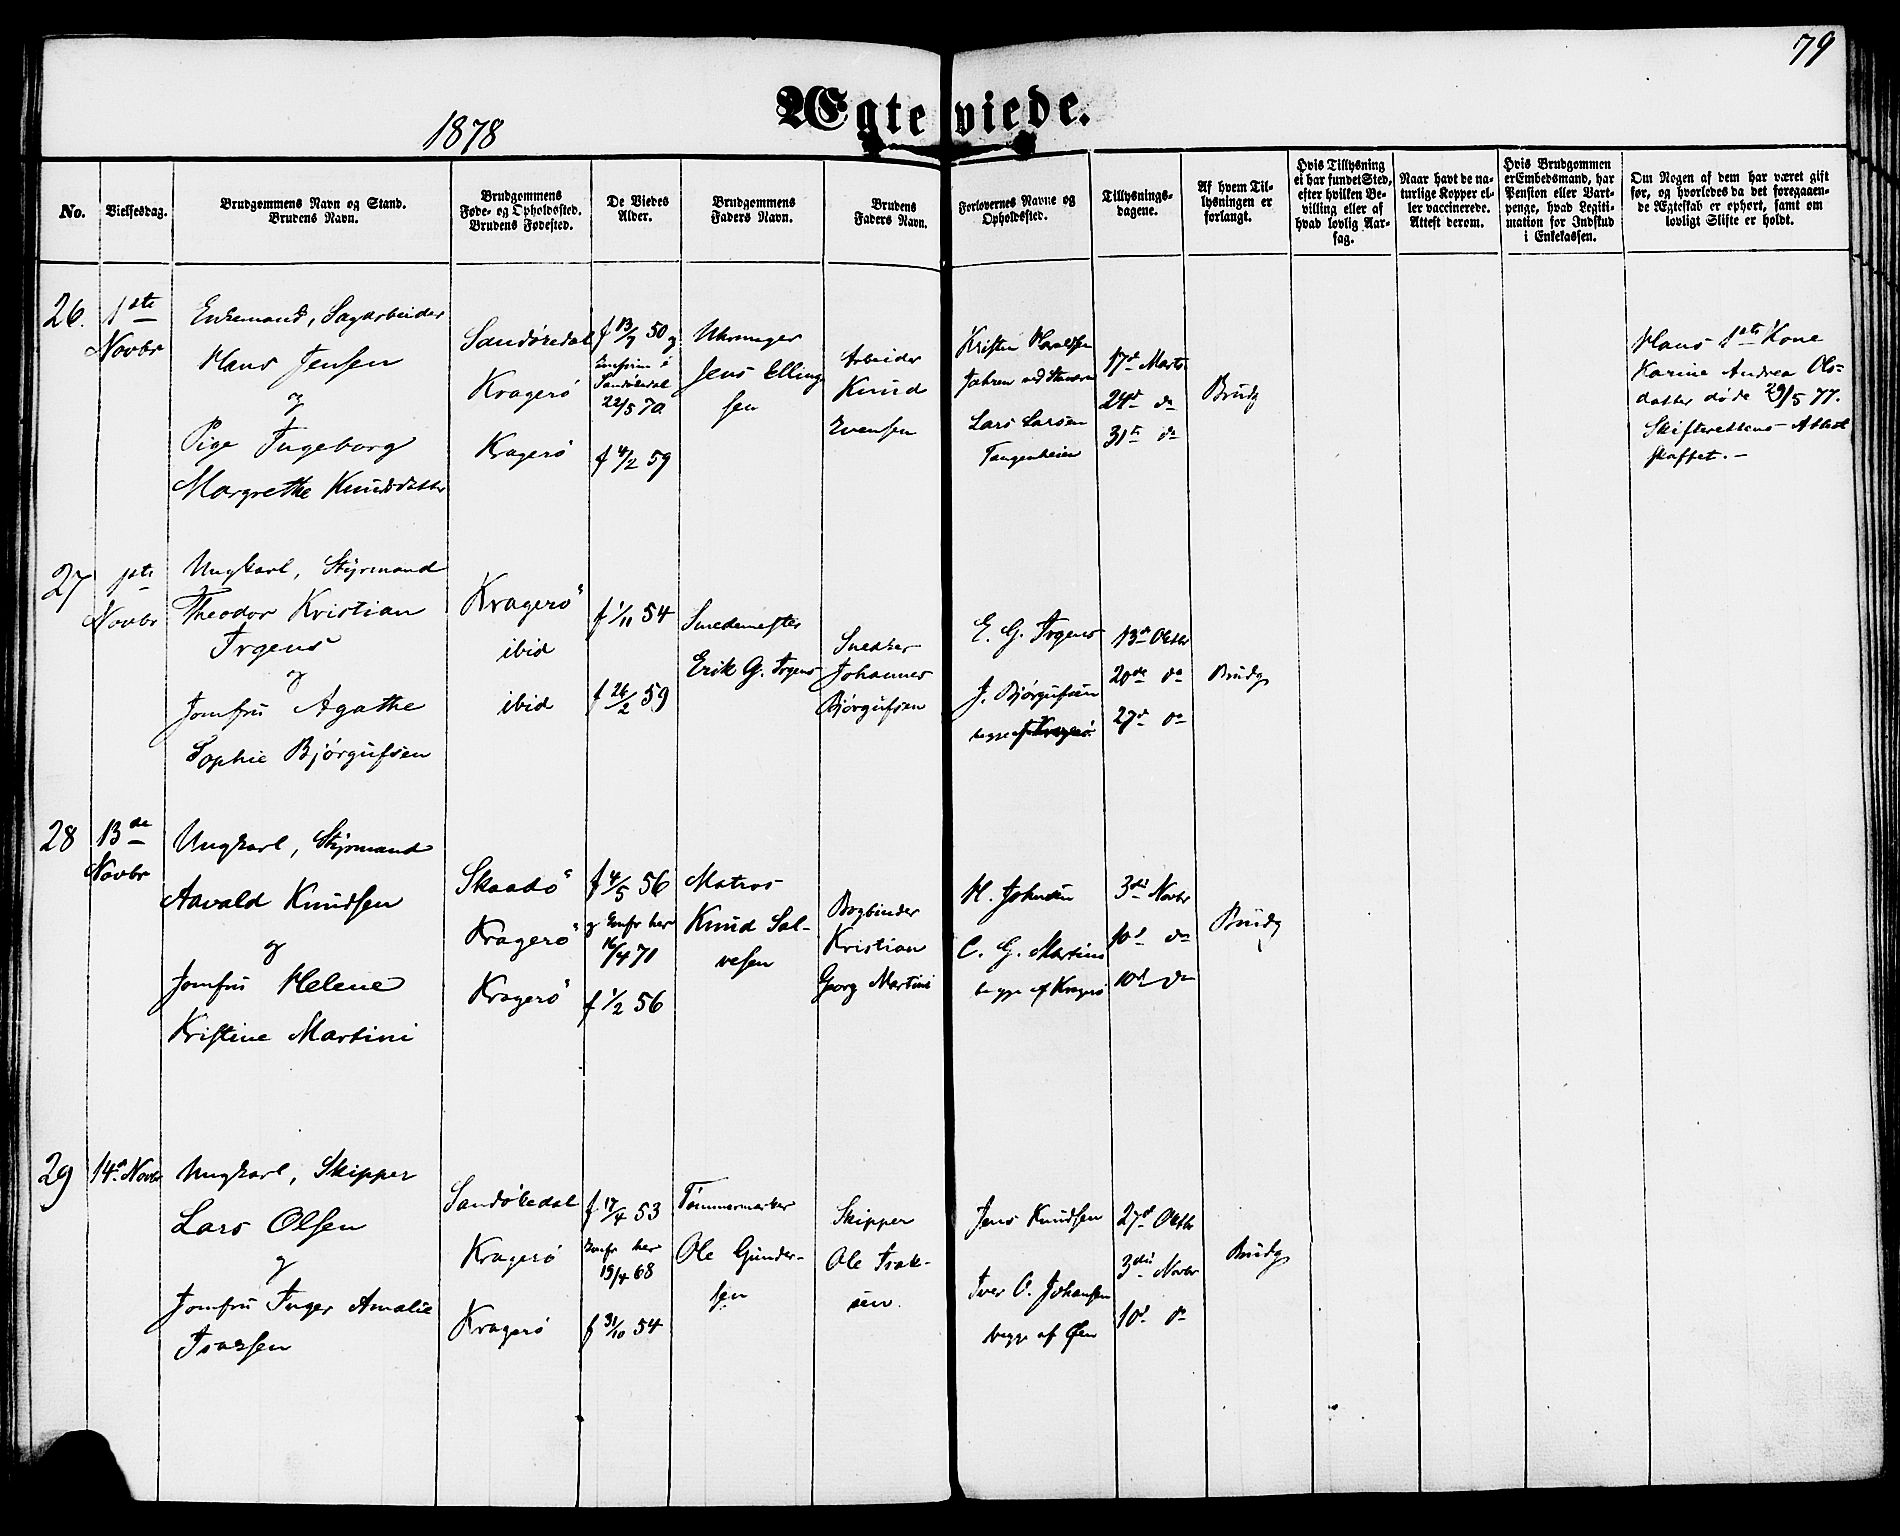 79
1878
Ægteviede.
No.
Vielsesdag.
Brudgommens Navn og Stand.
Brudens Navn.
Brudgommens
Føde- og Opholdssted.
Brudens Fødested.
De Viedes
Alder.
Brudgommens
Faders Navn.
Brudens
Faders Navn.
Forlovernes Navne og
Opholdssted.
Tillysnings-
dagene.
Af hvem Til-
lysningen er
forlangt.
Hvis Tillysning
ei har fundet Sted,
efter hvilken Be-
villing eller af
hvad lovlig Aar-
sag.
Naar havt de na-
turlige Kopper el-
ler vaccinerede.
Attest derom.
Hvis Brudgommen
er Embedsmand, har
Pension eller Vart-
penge, hvad Legiti-
mation for Indskud
i Enkekassen.
Om Nogen af dem har været gift
før, og hvorledes da det foregaaen-
de Ægteskab er ophørt, samt om
lovligt Skifte er holdt.
26.
1ste
Novbr
Enkemand, Sagarbeider
Hans Jensen
og
Pige Ingeborg
Margrethe Knudsdatter
Sandøkedal
Kragerö
Kragerö
f 13/7 50 og
konfirm i
Sandökedal
22/5 70
f 4/2 59
Uhrmager
Jens Elling-
sen
Arbeider
Knud
Evensen
Kristen
Lars Larsen
Tangenheien
17d Marts
24d do
31te do
Brudg
Hans 1ste Kone
Karine Andrea Ols-
datter döde 29/5 77.
Skifterettens Attest
skaffet. –
27
1ste
Novbr
Ungkarl, Styrmand
Theodor Kristian
Irgens
og
Jomfru Agathe
Sophie Bjørgufsen
Kragerö
ibid
ibid
f 1/11 54
f 26/2 59
Smedemester
Erik G. Irgens
Snedker
Johannes
Bjørgufsen
E. G. Irgens
J. Bjørgufsen
begge af Kragerö
13de Oktbr
20de do
27d do
Brudg
28
13de
Novbr
Ungkarl, Styrmand
Aavald Knudsen
og
Jomfru Helene
Kristine Martini
Skaadö
Kragerö
Kragerö
f 4/5 56
og Konfr her
16/4 71
f 1/2 56
Matros
Knud Sal-
vesen
Bogbinder
Kristian
Georg Martini
H. Johnsen
C. G. Martini
begge af Kragerö
3die Novbr
10d do
10d do
Brudg
29
14d Novbr
Ungkarl, Skipper
Lars Olsen
og
Jomfru Inger Amalie
Isaksen
Sandökedal
Kragerö
Kragerö
f 17/4 53
Konfr her
19/4 68
f 31/10 54
Tømmermærker
Ole Gunder-
sen
Skipper
Ole Isak-
sen.
Jens Knudsen
Iver O. Johansen
begge af Øen
27d Oktbr
3die Novbr
10d do
Brudg